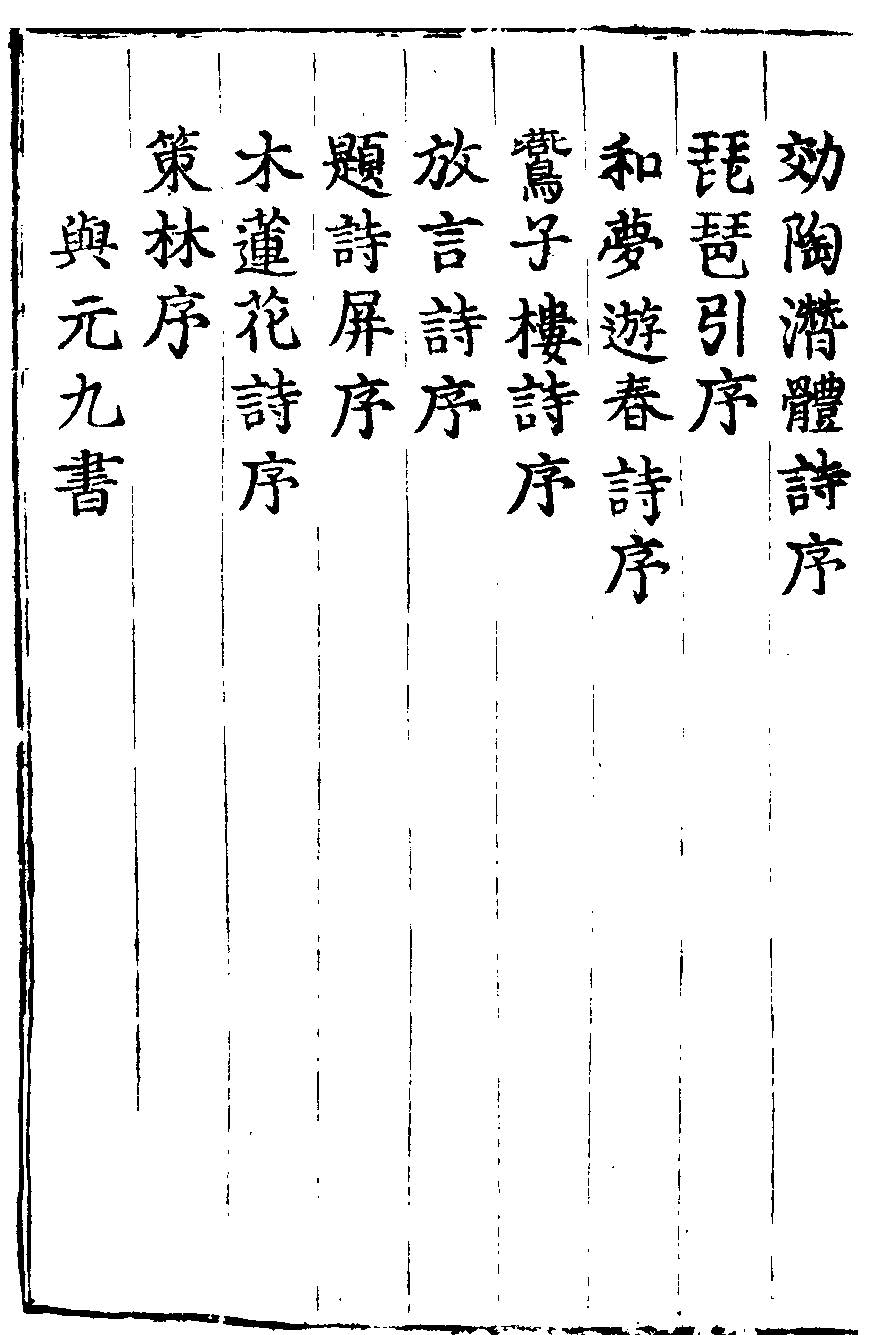 効陶潛體詩序
琵琶引序
和夢遊春詩序
鷰子樓詩序
放言詩序
題詩屏序
木蓮花詩序
策林序
與元九書